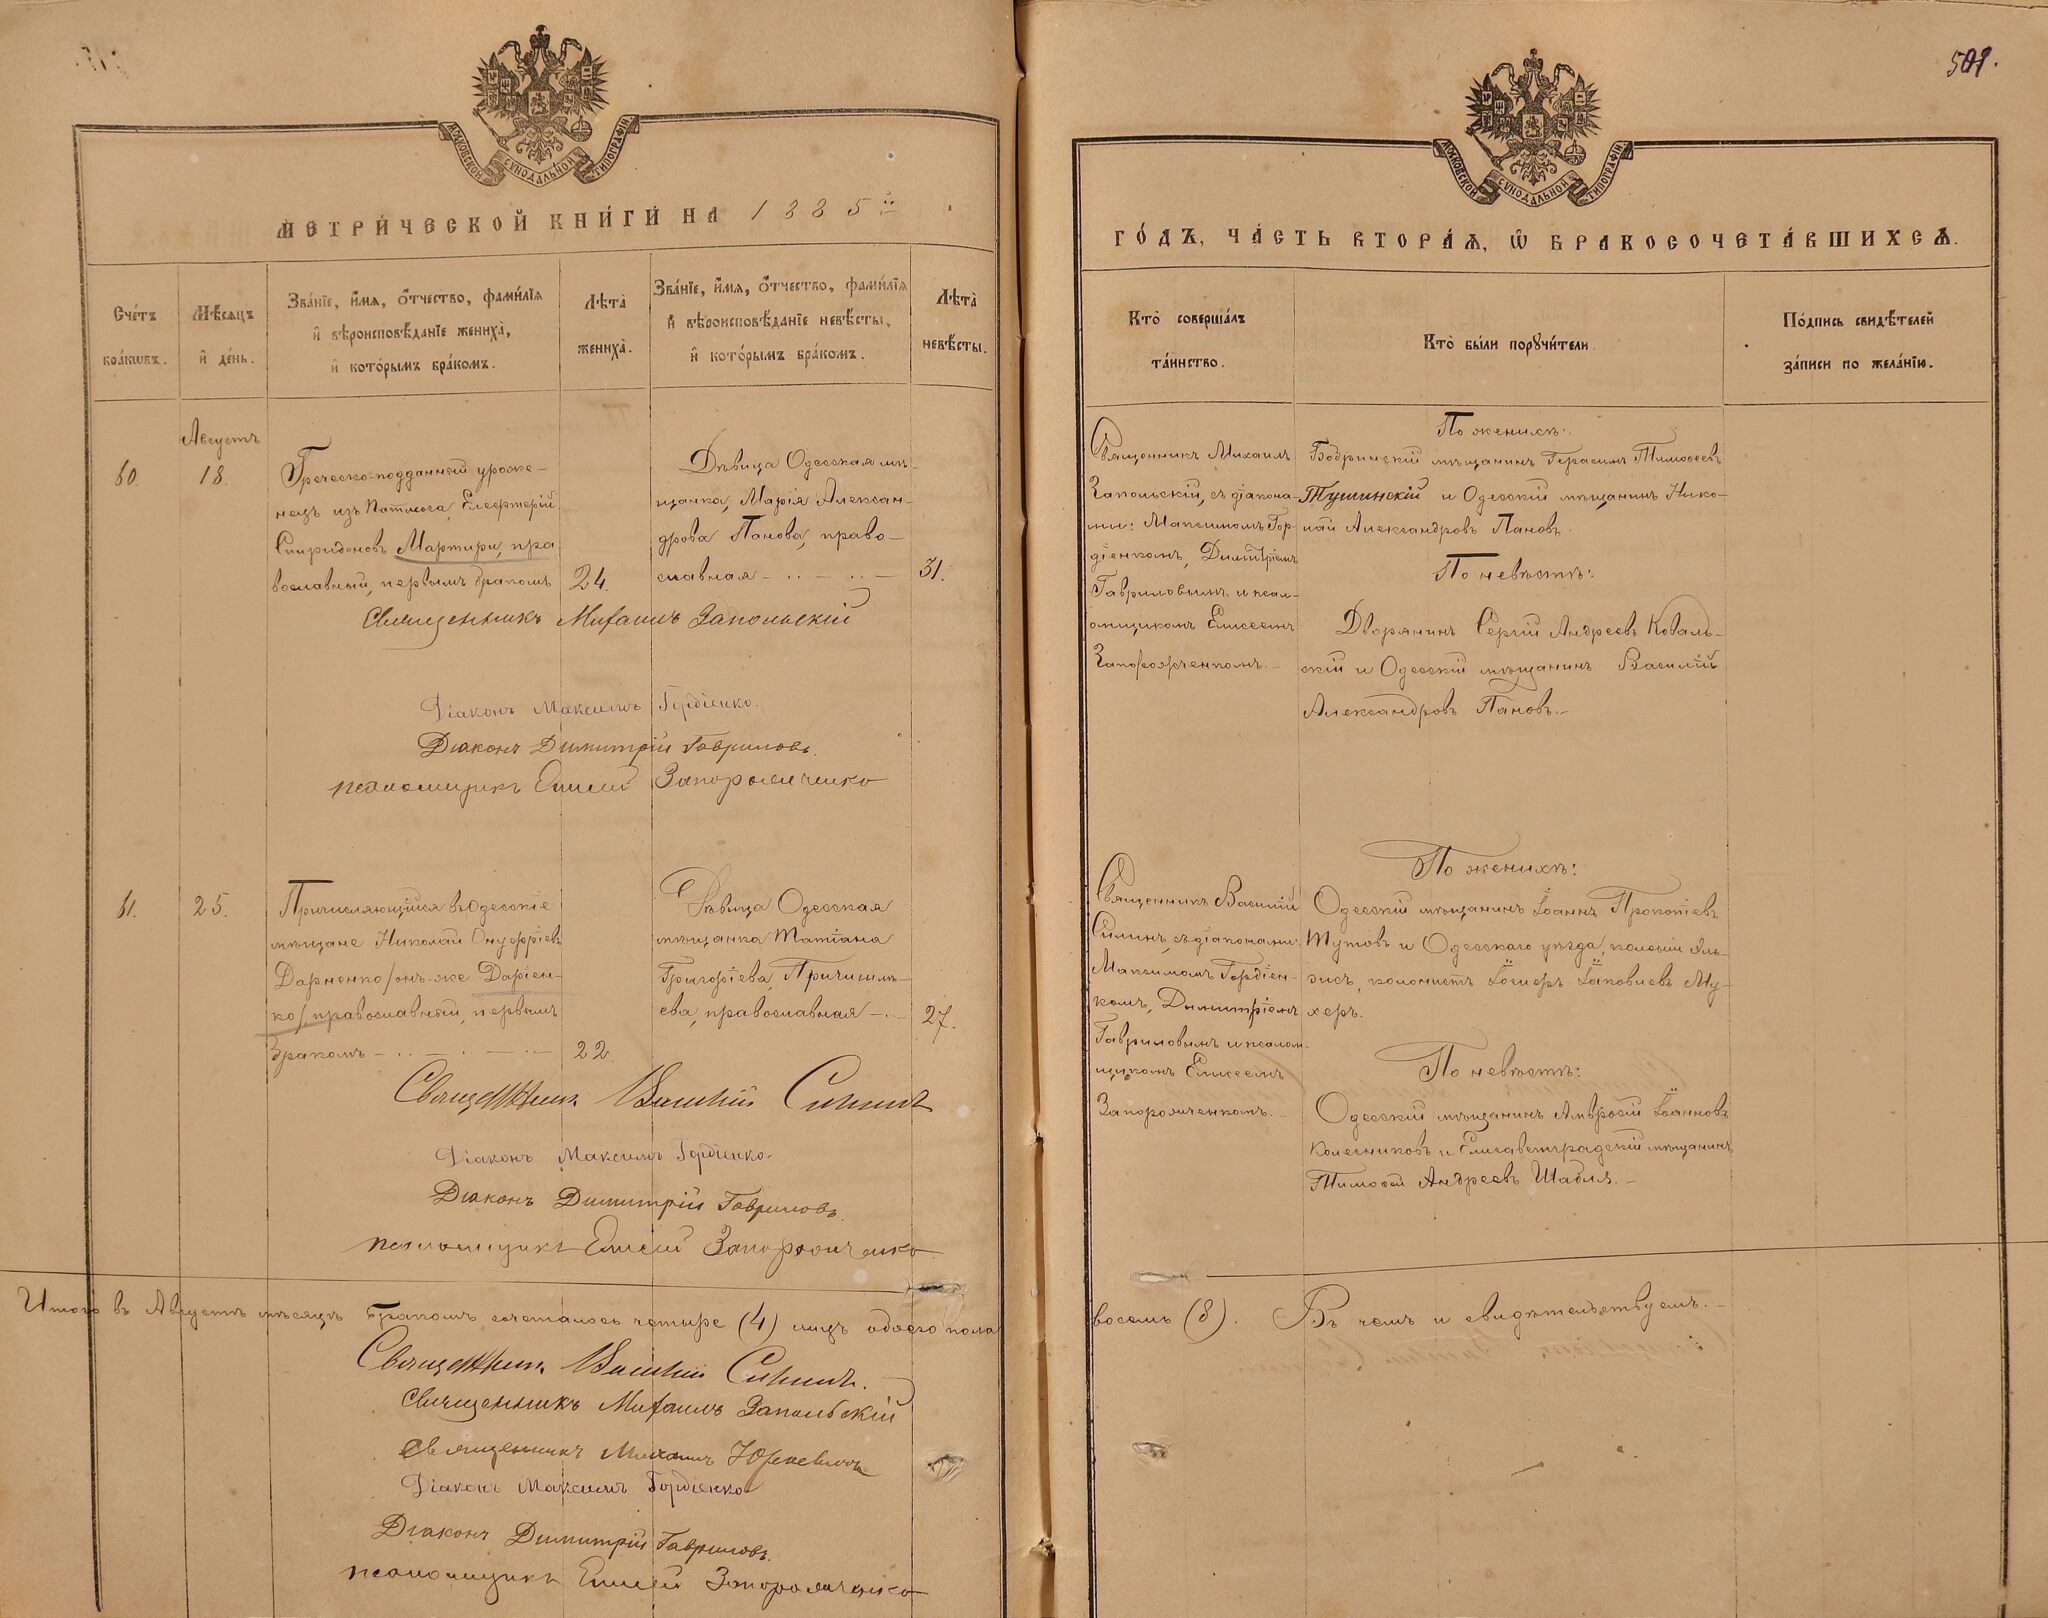 501.
МОСКОВСКОЙ СУНОДАЛЬНОЙ ТИПОГРАФІИ
МЕТРИ́ЧЕСКОЙ КНИ́ГИ НА 1885й
Сче́тъ бра́кωвъ.
Мѣ́сяцъ и де́нь.
Зва́нїе, и́мя, ѻ́тчество, фами́лїя и вѣроисповѣ́данїе жениха̀, и кото́рымъ бра́комъ.
Лѣта̀ жениха̀.
Зва́нїе, и́мя, ѻ́тчество, фами́лїя и вѣроисповѣ́данїе невѣ́сты, и кото́рымъ бра́комъ.
Лѣта̀ невѣ́сты.
Августъ
60.
18.
Греческо-подданный уроже-
нецъ изъ Патмоса, Елефтерій
Спиридоновъ Мартири, пра
вославный, первымъ бракомъ
24.
Дѣвица Одесская мѣ-
щанка, Марія Александ-
рова Панова, право-
славная
31.
Священникъ Михаилъ Запольскій
Діаконъ Максимъ Гордіенко.
Діаконъ Димитрій Гавриловъ.
псаломщикъ Елисей Запорожченко
61.
25.
Причисляющійся въ Одесскіе
мѣщане Николай Онуфріевъ
Дарненко /онъ-же Даріен-
ко/, православный, первымъ
бракомъ
22.
Дѣвица Одесская
мѣщанка Татіана
Григоріева,
православная
27.
Священникъ Василій Силинъ
Діаконъ Максимъ Гордіенко.
Діаконъ Димитрій Гавриловъ.
псаломщикъ Елисей Запорожченко
Итого въ Августѣ мѣсяцѣ бракомъ сочеталось четыре (4) лицъ обоего пола
Священникъ Василій Силинъ.
Священникъ Михаилъ Запольскій
Священникъ Михаилъ Юркевичъ
Діаконъ Максимъ Гордіенко
Діаконъ Димитрій Гавриловъ.
псаломщикъ Елисей Запорожченко
МОСКОВСКОЙ СУНОДАЛЬНОЙ ТИПОГРАФІИ
ГО́ДЪ, ЧА́СТЬ ВТОРА́Я, Ѡ БРАКОСОЧЕТА́ВШИХСЯ.
Кто̀ соверша́лъ та́инство.
Кто̀ бы́ли порꙋчи́тели.
По́дпись свидѣ́телей за́писи по жела́нїю.
Священникъ Михаилъ
Запольскій, съ діакона-
ми: Максимомъ Гор-
діенкомъ, Димитріемъ
Гавриловымъ и псал-
омщикомъ Елисеемъ
Запорожченкомъ.
По женихѣ:
Бобринскій мѣщанинъ Герасимъ Тимоѳеевъ
Тушинскій и Одесскій мѣщанинъ Нико-
лай Александровъ Пановъ.
По невѣстѣ:
Дворянинъ Сергій Андреевъ Коваль-
скій и Одесскій мѣщанинъ Василій
Александровъ Пановъ.
Священникъ Василій
Силинъ, съ діаконами:
Максимомъ Гордіен-
комъ, Димитріемъ
Гавриловымъ и псалом-
щикомъ Елисеемъ
Запорожченкомъ.
По женихѣ:
Одесскій мѣщанинъ Іоаннъ Прокопіевъ
Тутовъ и Одесскаго уѣзда, колоніи Эль-
засъ, колонистъ Іосифъ Іаковлевъ Му-
херъ.
По невѣстѣ:
Одесскій мѣщанинъ Амвросій Іоанновъ
Колесниковъ и Елисаветградскій мѣщанинъ
Тимоѳей Андреевъ Шабля.
восемь (8). Въ чемъ и свидѣтельствуемъ.